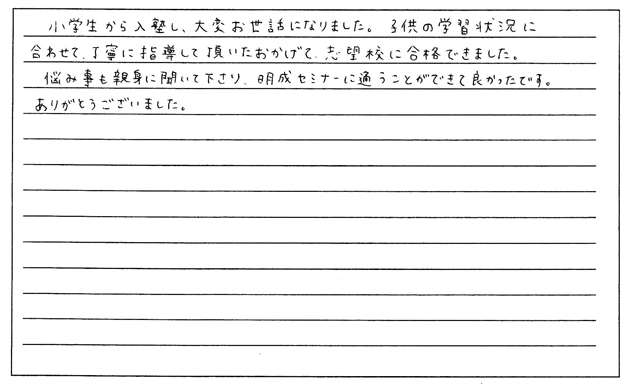 小学生から入塾し、大変お世話になりました。子供の学習状況に
合わせて、丁寧に指導して頂いたおかげで、志望校に合格できました。
悩み事も親身に聞いて下さり、明成セミナーに通うことができて良かったです。
ありがとうございました。